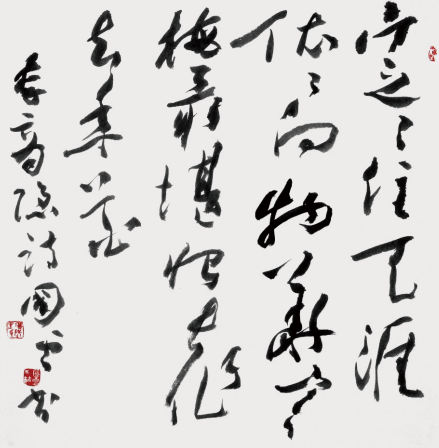 定定住天涯
依依向物華寒
梅最堪恨長作
去年花
李商隐诗国云书